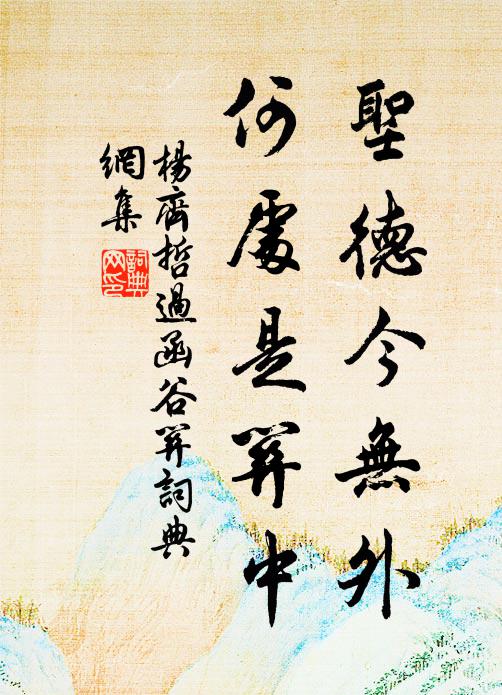 聖德今無外
何處是關中
楊齊哲過函谷關詞典
網集
詞典
网印